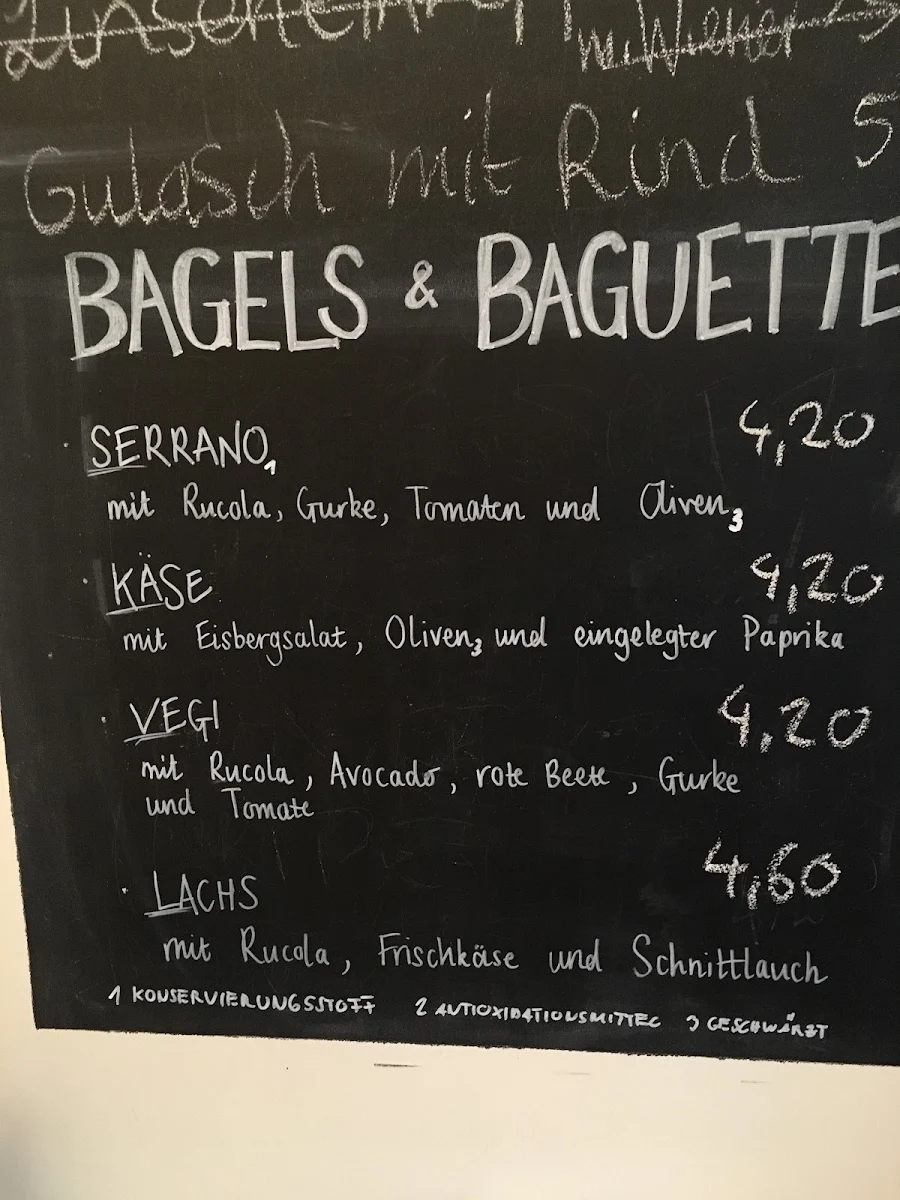 m. Wiener
Gulasch mit Rind 5
BAGELS & BAGUETTE
SERRANO1 4,20
mit Rucola, Gurke, Tomaten und Oliven3
KÄSE 4,20
mit Eisbergsalat, Oliven3 und eingelegter Paprika
VEGI 4,20
mit Rucola, Avocado, rote Beete, Gurke
und Tomate
LACHS 4,60
mit Rucola, Frischkäse und Schnittlauch
1 KONSERVIERUNGSSTOFF 2 ANTIOXIDATIONSMITTEL 3 GESCHWÄRZT